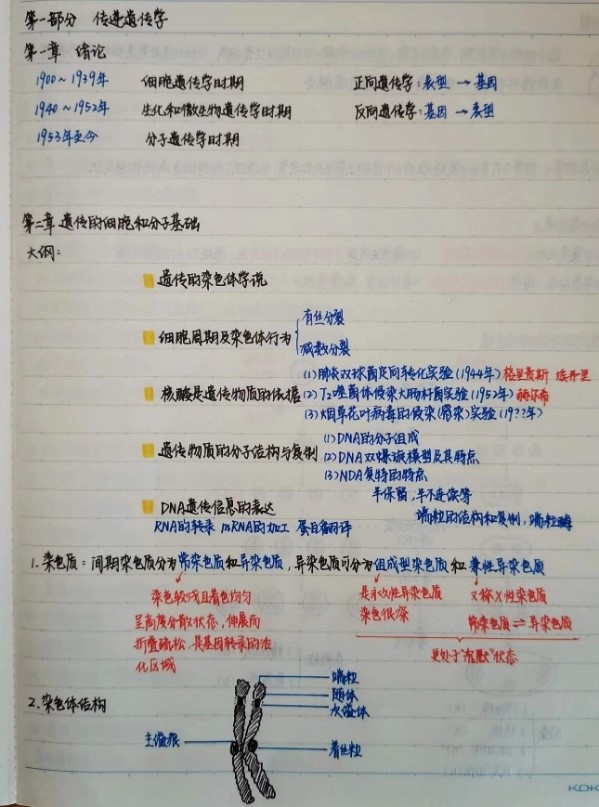 第一部分 传递遗传学
第一章 绪论
1900~1939年 细胞遗传学时期 正向遗传学:表型 → 基因
1940~1952年 生化和微生物遗传学时期 反向遗传学:基因 → 表型
1953年至今 分子遗传学时期
第二章 遗传的细胞和分子基础
大纲:
遗传的染色体学说
细胞周期及染色体行为
有丝分裂
减数分裂
核酸是遗传物质的依据
(1)肺炎双球菌定向转化实验(1944年)格里费斯 埃弗里
(2)T₂噬菌体侵染大肠杆菌实验(1952年)赫尔希
(3)烟草花叶病毒的侵染(感染)实验(19??年)
遗传物质的分子结构与复制
(1)DNA的分子组成
(2)DNA双螺旋模型及其特点
(3)NDA复特的特点
半保留,半不连续等
端粒的结构和复制,端粒酶
DNA遗传信息的表达
RNA的转录 mRNA的加工 蛋白翻译
1.染色质:间期染色质分为常染色质和异染色质,异染色质可分为组成型染色质和兼性异染色质
染色较浅且着色均匀
呈高度分散状态,伸展而
折叠疏松,是基因转录的活
化区域
是永久性异染色质
染色很深
又称X性染色质
常染色质 ⇌ 异染色质
更处于"沉默"状态
2.染色体结构
端粒
随体
次缢体
主缢痕
着丝粒
KOK